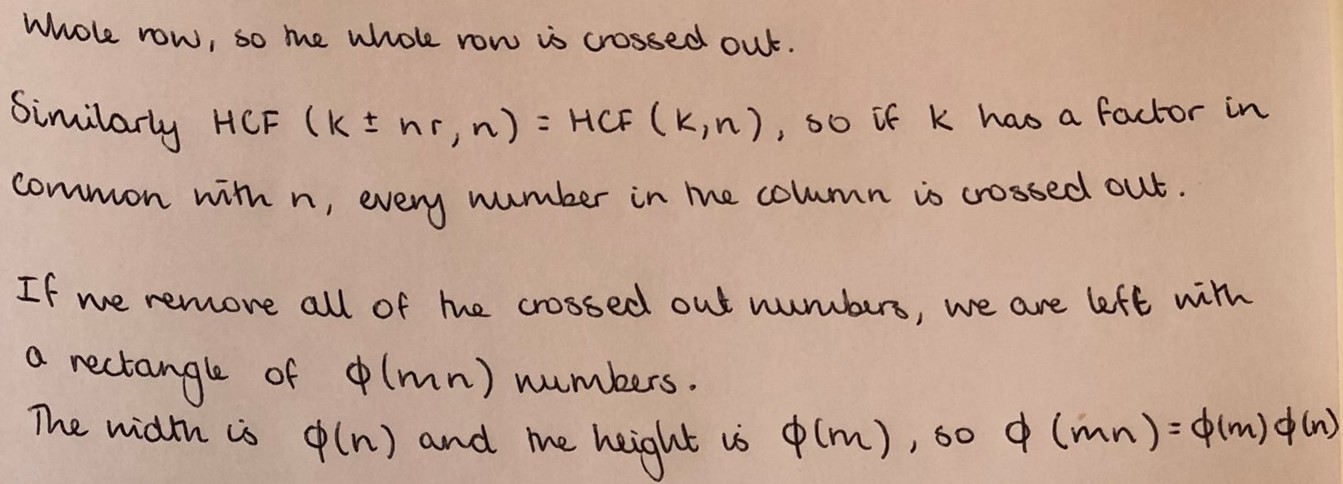 Whole row, so the whole row is crossed out.
Similarly HCF (k ± nr, n) = HCF (k,n), so if k has a factor in
common with n, every number in the column is crossed out.
If we remove all of the crossed out numbers, we are left with
a rectangle of ϕ(mn) numbers.
The width is ϕ(n) and the height is ϕ(m), so ϕ (mn) = ϕ(m) ϕ(n)